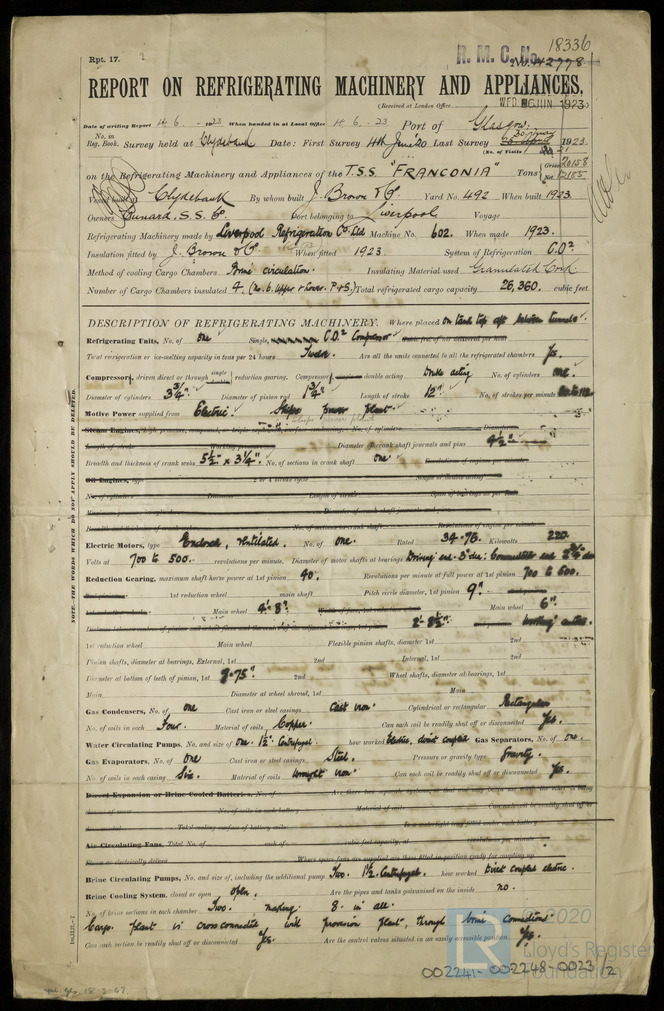 18336
Rpt. 17.
R. M. C. No.
No. 42778
REPORT ON REFRIGERATING MACHINERY AND APPLIANCES.
(Received at London Office WED. 6 JUN 1923)
Date of writing Report 14. 6. 1923 When handed in at Local Office 14. 6. 23 Port of Glasgow
No. in Reg. Book. Survey held at Clydebank Date: First Survey Last Survey 1923
(No. of Visits
on the Refrigerating Machinery and Appliances of the T.S.S "FRANCONIA" Tons Gross 20158 Net 12185
Vessel built at Clydebank By whom built J. Brown & Co. Yard No. 492 When built 1923
Owners Cunard. S.S. Co Port belonging to Liverpool Voyage
Refrigerating Machinery made by Liverpool Refrigeration Co. Ltd Machine No. 602. When made 1923.
Insulation fitted by J. Brown & Co. When fitted 1923. System of Refrigeration C.O²
Method of cooling Cargo Chambers Brine circulation. Insulating Material used Granulated Cork
Number of Cargo Chambers insulated 4. (No. 6. Upper & Lower. P & S.) Total refrigerated cargo capacity 26,360. cubic feet.
DESCRIPTION OF REFRIGERATING MACHINERY. Where placed on tank top aft between tunnels.
Refrigerating Units, No. of one Single, C.O² Compressor
Total refrigeration or ice-melting capacity in tons per 24 hours Twelve. Are all the units connected to all the refrigerated chambers Yes.
Compressors, driven direct or through single reduction gearing. Compressor, double acting Double acting No. of cylinders one.
Diameter of cylinders 3¾". Diameter of piston rod 1¾" Length of stroke 12" No. of strokes per minute
Motive Power supplied from Electric Ships power plant.
Steam Engines, No. of cylinders Diameter
Length of stroke Working pressure Diameter of crank shaft journals and pins 4½"
Breadth and thickness of crank webs 5½" x 3¼". No. of sections in crank shaft one Revolutions of engines per minute
Oil Engines, type 2 or 4 stroke cycle Single or double acting
No. of cylinders Diameter Length of stroke Span of bearings as per Rule
Diameter of crank shaft journals and pins
No. of sections in crank shaft Revolutions of engines per minute
Electric Motors, type Enclosed, ventilated. No. of one. Rated 34.75. Kilowatts 220.
Volts at 700 to 500. revolutions per minute. Diameter of motor shafts at bearings Driving end. 3" dia: Commutator end 2¾" dia
Reduction Gearing, maximum shaft horse power at 1st pinion 40. Revolutions per minute at full power at 1st pinion 700 to 500.
1st reduction wheel main shaft Pitch circle diameter, 1st pinion 9".
Main wheel 4'-8". Main wheel 6".
2'-8½" working centres.
1st reduction wheel Main wheel Flexible pinion shafts, diameter 1st 2nd
Pinion shafts, diameter at bearings, External, 1st 2nd Internal, 1st 2nd
Diameter at bottom of teeth of pinion, 1st 2nd Wheel shafts, diameter at bearings, 1st
Main Diameter at wheel shroud, 1st Main
Gas Condensers, No. of one Cast iron or steel casings Cast iron. Cylindrical or rectangular Rectangular
No. of coils in each Four. Material of coils Copper. Can each coil be readily shut off or disconnected Yes.
Water Circulating Pumps, No. and size of One. 1½" Centrifugal. how worked Electric, direct coupled Gas Separators, No. of one.
Gas Evaporators, No. of One Cast iron or steel casings Steel. Pressure or gravity type gravity.
No. of coils in each casing Six. Material of coils Wrought iron. Can each coil be readily shut off or disconnected Yes.
Direct Expansion or Brine Cooled Batteries, No. of
No. of coils in each battery Material of coils Can each coil be readily shut off or
Total cooling surface of battery coils
Air Circulating Fans, Total No. of each of cubic feet capacity, at revolutions per minute
Steam or electrically driven Where spare fans are supplied are these fitted in position ready for coupling up
Brine Circulating Pumps, No. and size of, including the additional pump Two. 1½ Centrifugal. how worked Direct coupled electric.
Brine Cooling System, closed or open open. Are the pipes and tanks galvanised on the inside no.
No. of brine sections in each chamber Two. making 8. in all.
Cargo plant is cross-connected with provision plant, through brine connections.
Can each section be readily shut off or disconnected Yes. Are the control valves situated in an easily accessible position Yes.
NOTE.—THE WORDS WHICH DO NOT APPLY SHOULD BE DELETED.
© 2020
Lloyd's Register
Foundation
002241-002248-0023 1/2